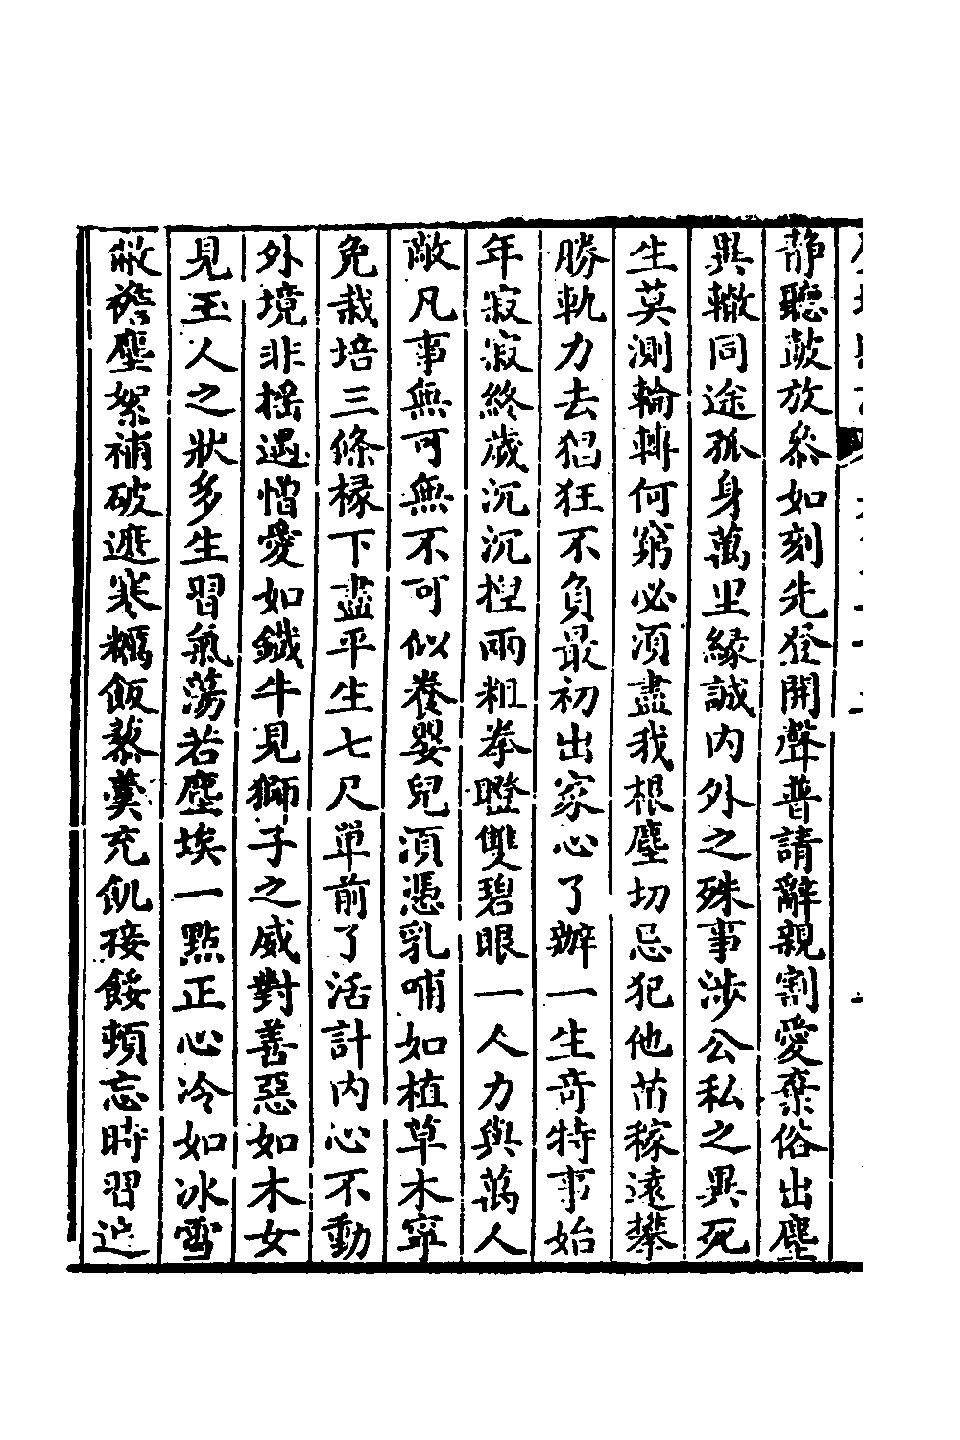 靜聽鼓放參如刻先登開聲普請辭親割愛棄俗出塵
異轍同途孤身萬里緣誠內外之殊事涉公私之異死
生莫測輪轉何窮必須盡我根塵切忌犯他苗稼遠攀
勝軌力去猖狂不負最初出家心了辦一生奇特事始
年寂寂終歲沉沉捏兩粗拳瞪雙碧眼一人力與萬人
敵凡事無可無不可似養嬰兒須憑乳哺如植草木寧
免栽培三條椽下盡平生七尺單前了活計內心不動
外境非搖遇憎愛如鐵牛見獅子之威對善惡如木女
見玉人之狀多生習氣蕩若塵埃一點正心冷如冰雪
敝襜塵絮補破遮寒糲飯藜羹充飢接餒頓忘時習